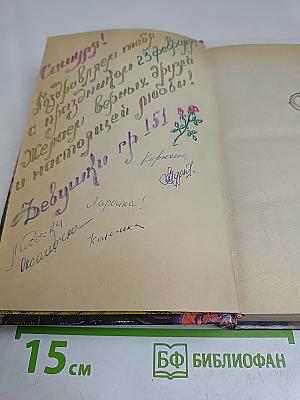 Сенкура!
Поздравляем тебя
с праздником 23 февраля
Желаем верных друзей
и настоящей любви!
Девушки гр 151
Ларочка!
Оксаночка
15 см
БФ БИБЛИОФАН